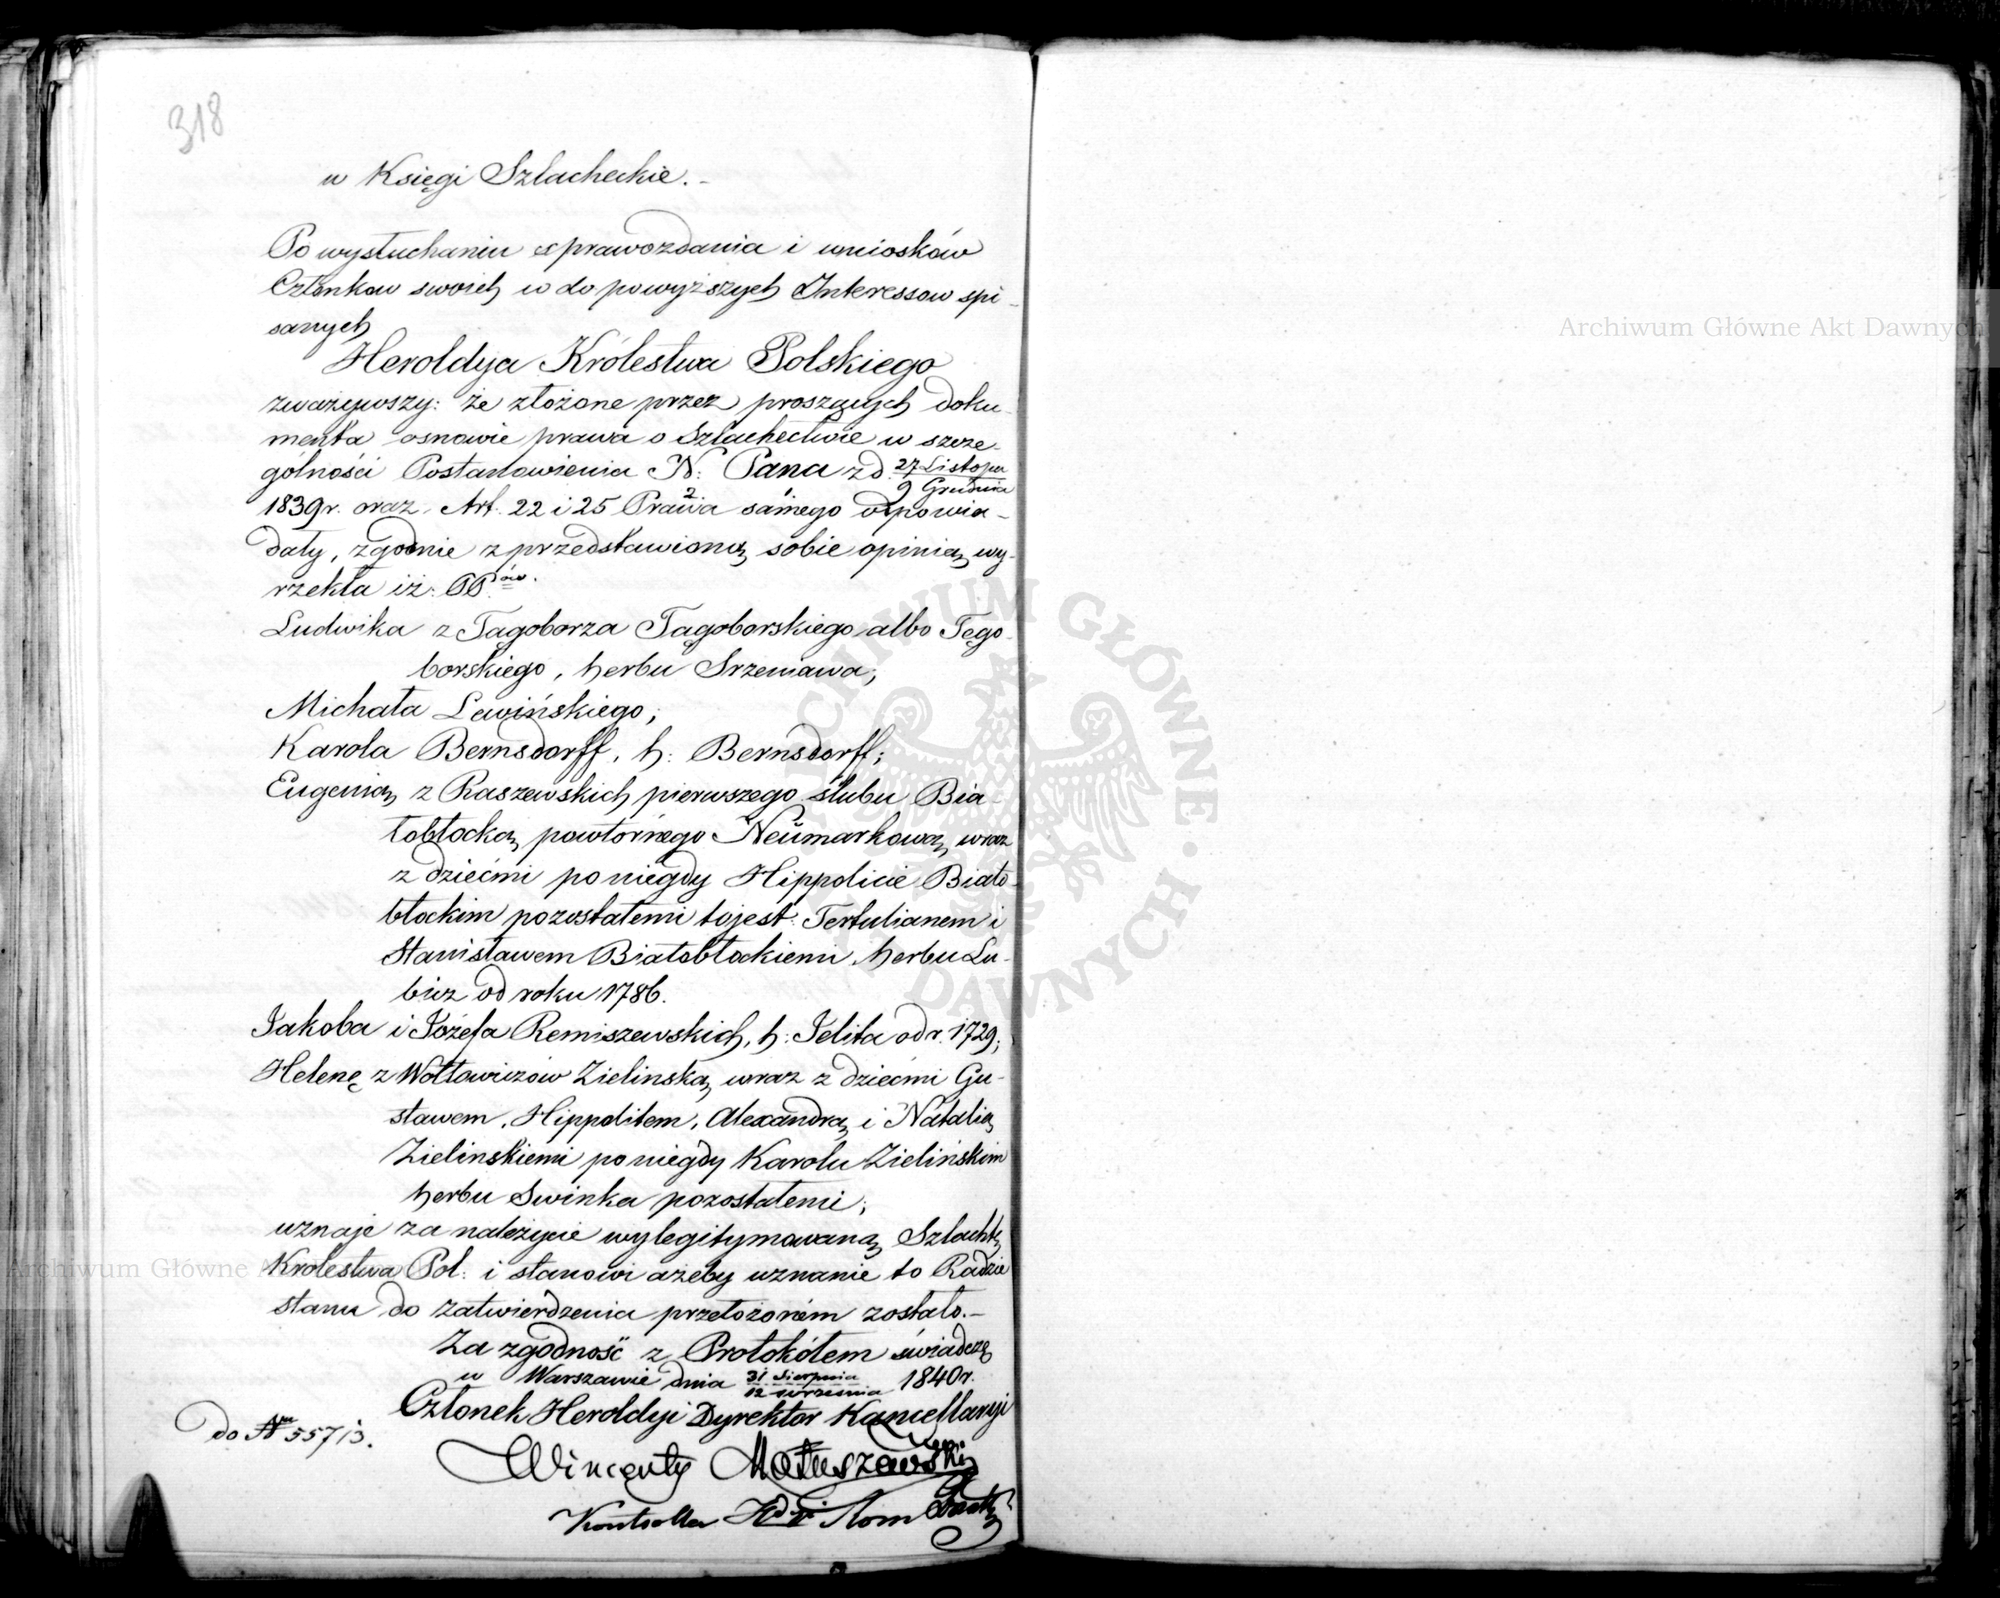 318
w Księgi Szlacheckie.-
Po wysłuchaniu sprawozdania i wniosków
Członkow swoich w do powyższych Interessow spi-
sanych
Heroldya Królestwa Polskiego
zważywszy: że złożone przez proszących doku-
menta osnowie prawa o Szlachectwie w szcze-
gólności Postanowienia N: Pana z d. 27 Listopa
9 Grudnia
1839 r. oraz Art. 22 i 25 Prawa samego odpowia-
dały, zgodnie z przedstawioną sobie opinią wy-
rzekła iż: PP.ów.
Ludwika z Tągoborza Tągoborskiego albo Tęgo-
borskiego, herbu Srzeniawa;
Michała Lewińskiego;
Karola Bernsdorff, h: Bernsdorff;
Eugenią z Raszewskich pierwszego ślubu Bia-
łobłocką powtórnego Neumarkową wraz
z dziećmi po niegdy Hippolicie Biało-
błockim pozostałemi tojest: Tertulianem i
Stanisławem Białobłockiemi, herbu Lu-
bicz od roku 1786.
Jakoba i Józefa Remiszewskich, h: Jelita od r. 1729;
Helenę z Wołłowiczów Zielinską wraz z dziećmi Gu-
stawem, Hippolitem, Alexandrą i Natalią
Zielinskiemi po niegdy Karolu Zielińskim
herbu Swinka pozostałemi;
uznaje za należycie wylegitymowaną Szlachtę
Królestwa Pol: i stanowi ażeby uznanie to Radzie
stanu do zatwierdzenia przełożoném zostało.-
Za zgodność z Protokółem świadczę
w Warszawie dnia 31 Sierpnia 1840 r.
12 września
Członek Heroldyi Dyrektor Kancellaryi
do Nru 55713.
Wincenty Matuszewski
Kontroller
Archiwum Główne Akt Dawnych
Archiwum Główne
ARCHIWUM GŁÓWNE · DAWNYCH ·